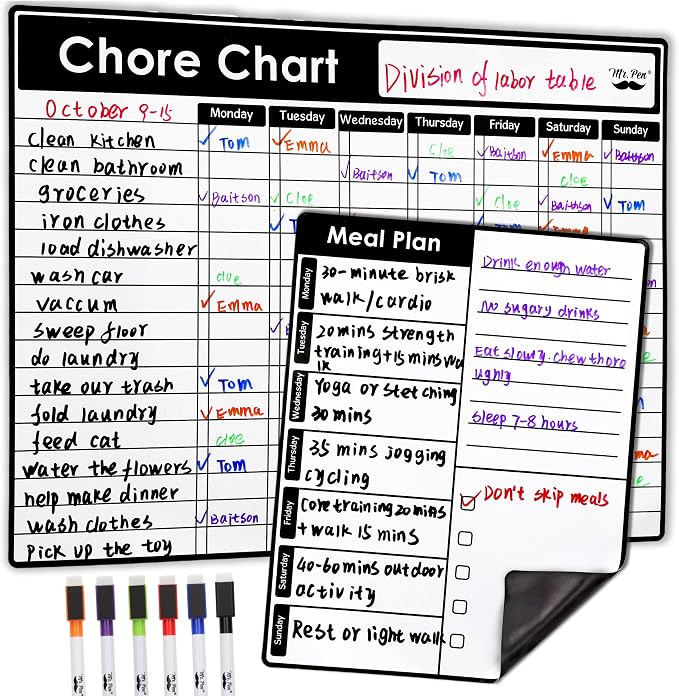 Chore Chart
Division of labor table
Mr. Pen®
October 9-15 Monday Tuesday Wednesday Thursday Friday Saturday Sunday
Clean kitchen ✓ Tom ✓ Emma Cloe ✓ Baitson ✓ Emma ✓ Baitson
clean bathroom ✓ Baitson ✓ Tom cloe
groceries ✓ Baitson ✓ Cloe ✓ Cloe ✓ Baithson ✓ Tom
iron clothes ✓
load dishwasher
wash car cloe
vaccum ✓ Emma
sweep floor ✓
do laundry
take our trash ✓ Tom
fold laundry ✓ Emma
feed cat cloe
water the flowers ✓ Tom
help make dinner
wash clothes ✓ Baitson
Pick up the toy
Meal Plan
Monday
30-minute brisk
walk/cardio
Tuesday
20mins strength
training+15 mins wa
lk
Wednesday
Yoga or stetching
30 mins
Thursday
35 mins jogging
cycling
Friday
Core training 20 mins
+ walk 15 mins
Saturday
40-60 mins outdoor
activity
Sunday
Rest or light walk
Drink enough water
No sugary drinks
Eat slowly. chew thoro
ughly
Sleep 7-8 hours
✓ Don't skip meals
Mr. Pen